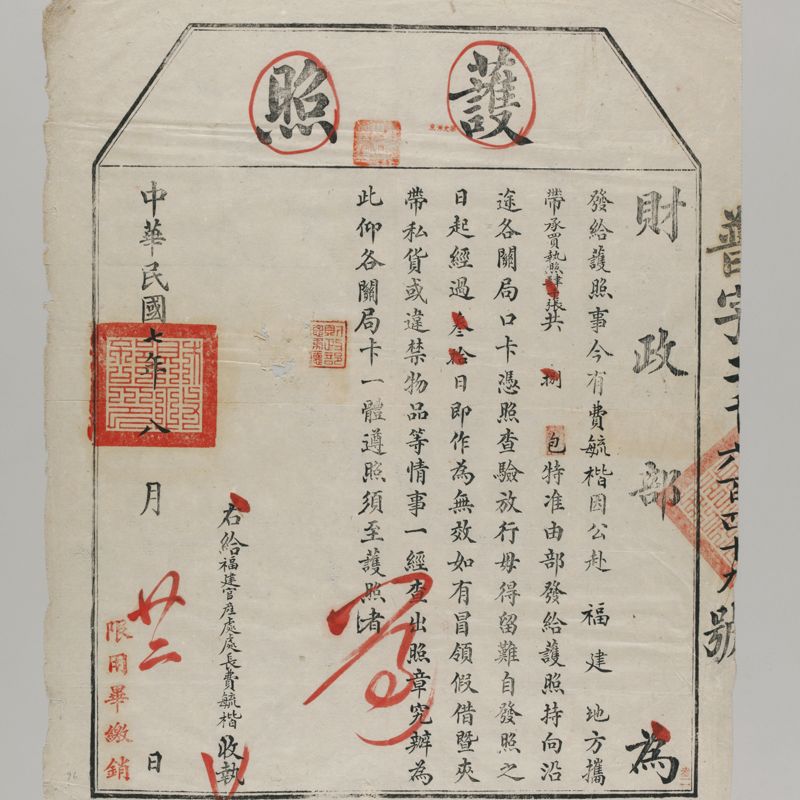 護照
財政部為
發給護照事今有費毓楷因公赴福建地方攜
帶承買執照肆張共捌包特准由部發給護照持向沿
途各關局口卡憑照查驗放行毋得留難自發照之
日起經過叁拾日即作為無效如有冒領假借暨夾
帶私貨或違禁物品等情事一經查出照章究辦為
此仰各關局卡一體遵照須至護照者
右給福建官產處處長費毓楷收執
中華民國七年八月廿二日
限用畢繳銷